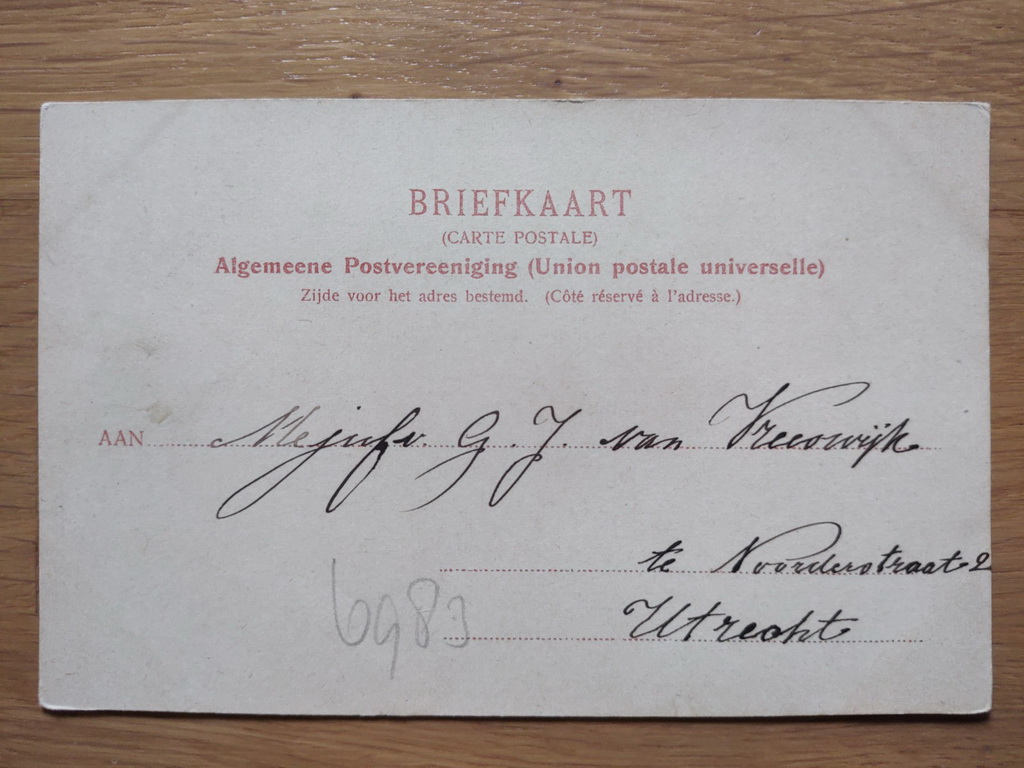 BRIEFKAART
(CARTE POSTALE)
Algemeene Postvereeniging (Union postale universelle)
Zijde voor het adres bestemd. (Côté réservé à l'adresse.)
AAN Mejufv. G. J. van Vreeswijk
te Noorderstraat 2
Utrecht
6983